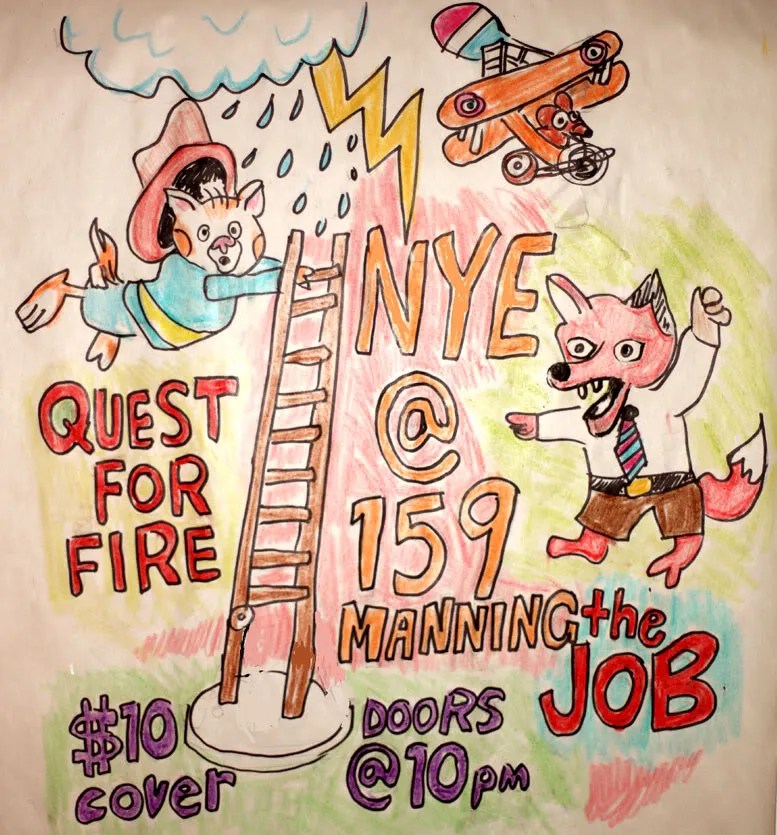 NYE
@
159
MANNING
QUEST
FOR
FIRE
the
JOB
$10
cover
DOORS
@10pm